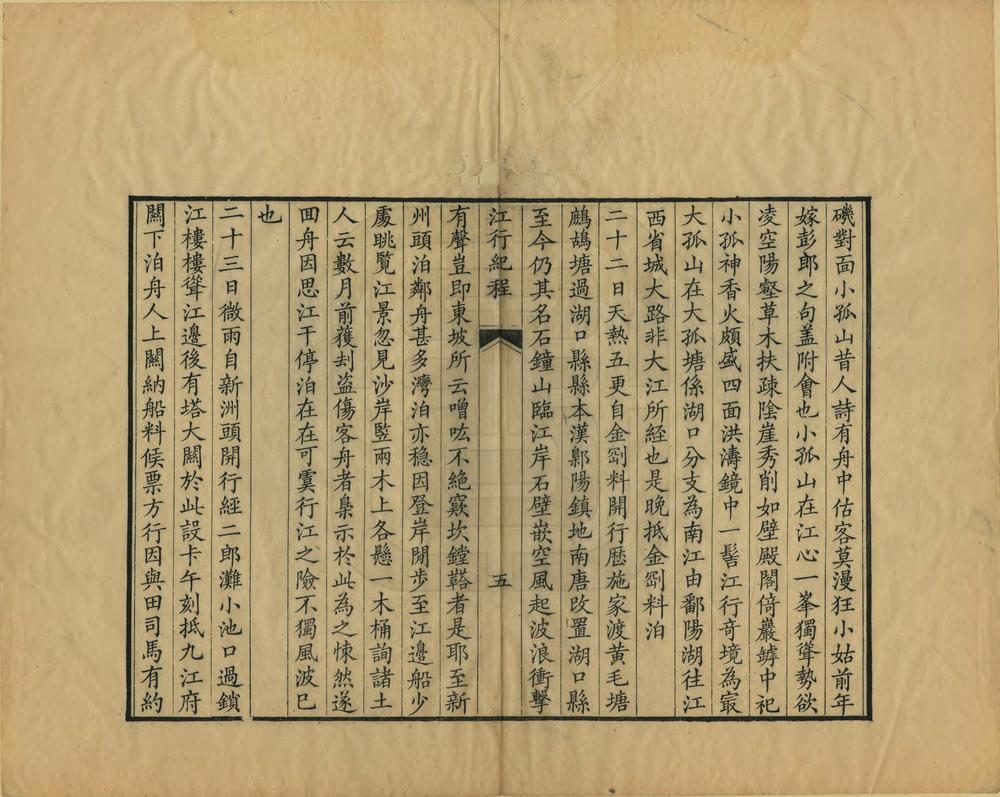 磯對面小孤山昔人詩有舟中估客莫漫狂小姑前年
嫁彭郎之句盖附會也小孤山在江心一峯獨聳勢欲
凌空陽壑草木扶疎陰崖秀削如壁殿閣倚巖罅中祀
小孤神香火頗盛四面洪濤鏡中一髻江行奇境為㝡
大孤山在大孤塘係湖口分支為南江由鄱陽湖往江
西省城大路非大江所経也是晚抵金劄料泊
二十二日天熱五更自金劄料開行歷施家渡黄毛塘
鷓鴣塘過湖口縣縣本漢鄡陽鎮地南唐改置湖口縣
至今仍其名石鐘山臨江岸石壁嵌空風起波浪衝擊
江行紀程
五
有聲豈即東坡所云噌吰不絶窾坎鏜鞳者是耶至新
州頭泊鄰舟甚多灣泊亦穏因登岸閒步至江邊船少
處眺覽江景忽見沙岸竪兩木上各懸一木桶詢諸土
人云數月前獲刦盗傷客舟者梟示於此為之悚然遂
回舟因思江干停泊在在可虞行江之險不獨風波已
也
二十三日微雨自新洲頭開行經二郎灘小池口過鎖
江樓樓聳江邊後有塔大關於此設卡午刻抵九江府
關下泊舟人上關納船料候票方行因與田司馬有約